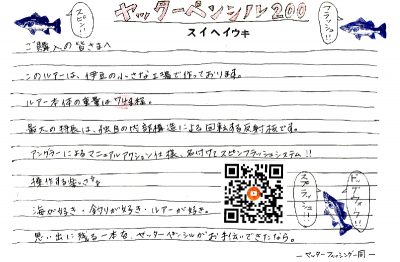 スピン!!
ヤッターペンシル200
フラッシュ!!
スイヘイウキ
ご購入の皆さまへ
このルアーは、伊豆の小さな工場で作っております。
ルアー本体の重量は74g様。
最大の特長は、独自の内部構造による回転する反射板です。
アングラーによるマニュアルアクション仕様、名付けてスピンフラッシュシステム!!
操作する楽しさを
スプラッシュ!!
ドッグウォーク!!
海が好き・釣りが好き・ルアーが好き。
思い出に残る一本を、ヤッターペンシルがお手伝いできたなら。
—ヤッターフィッシング一同—